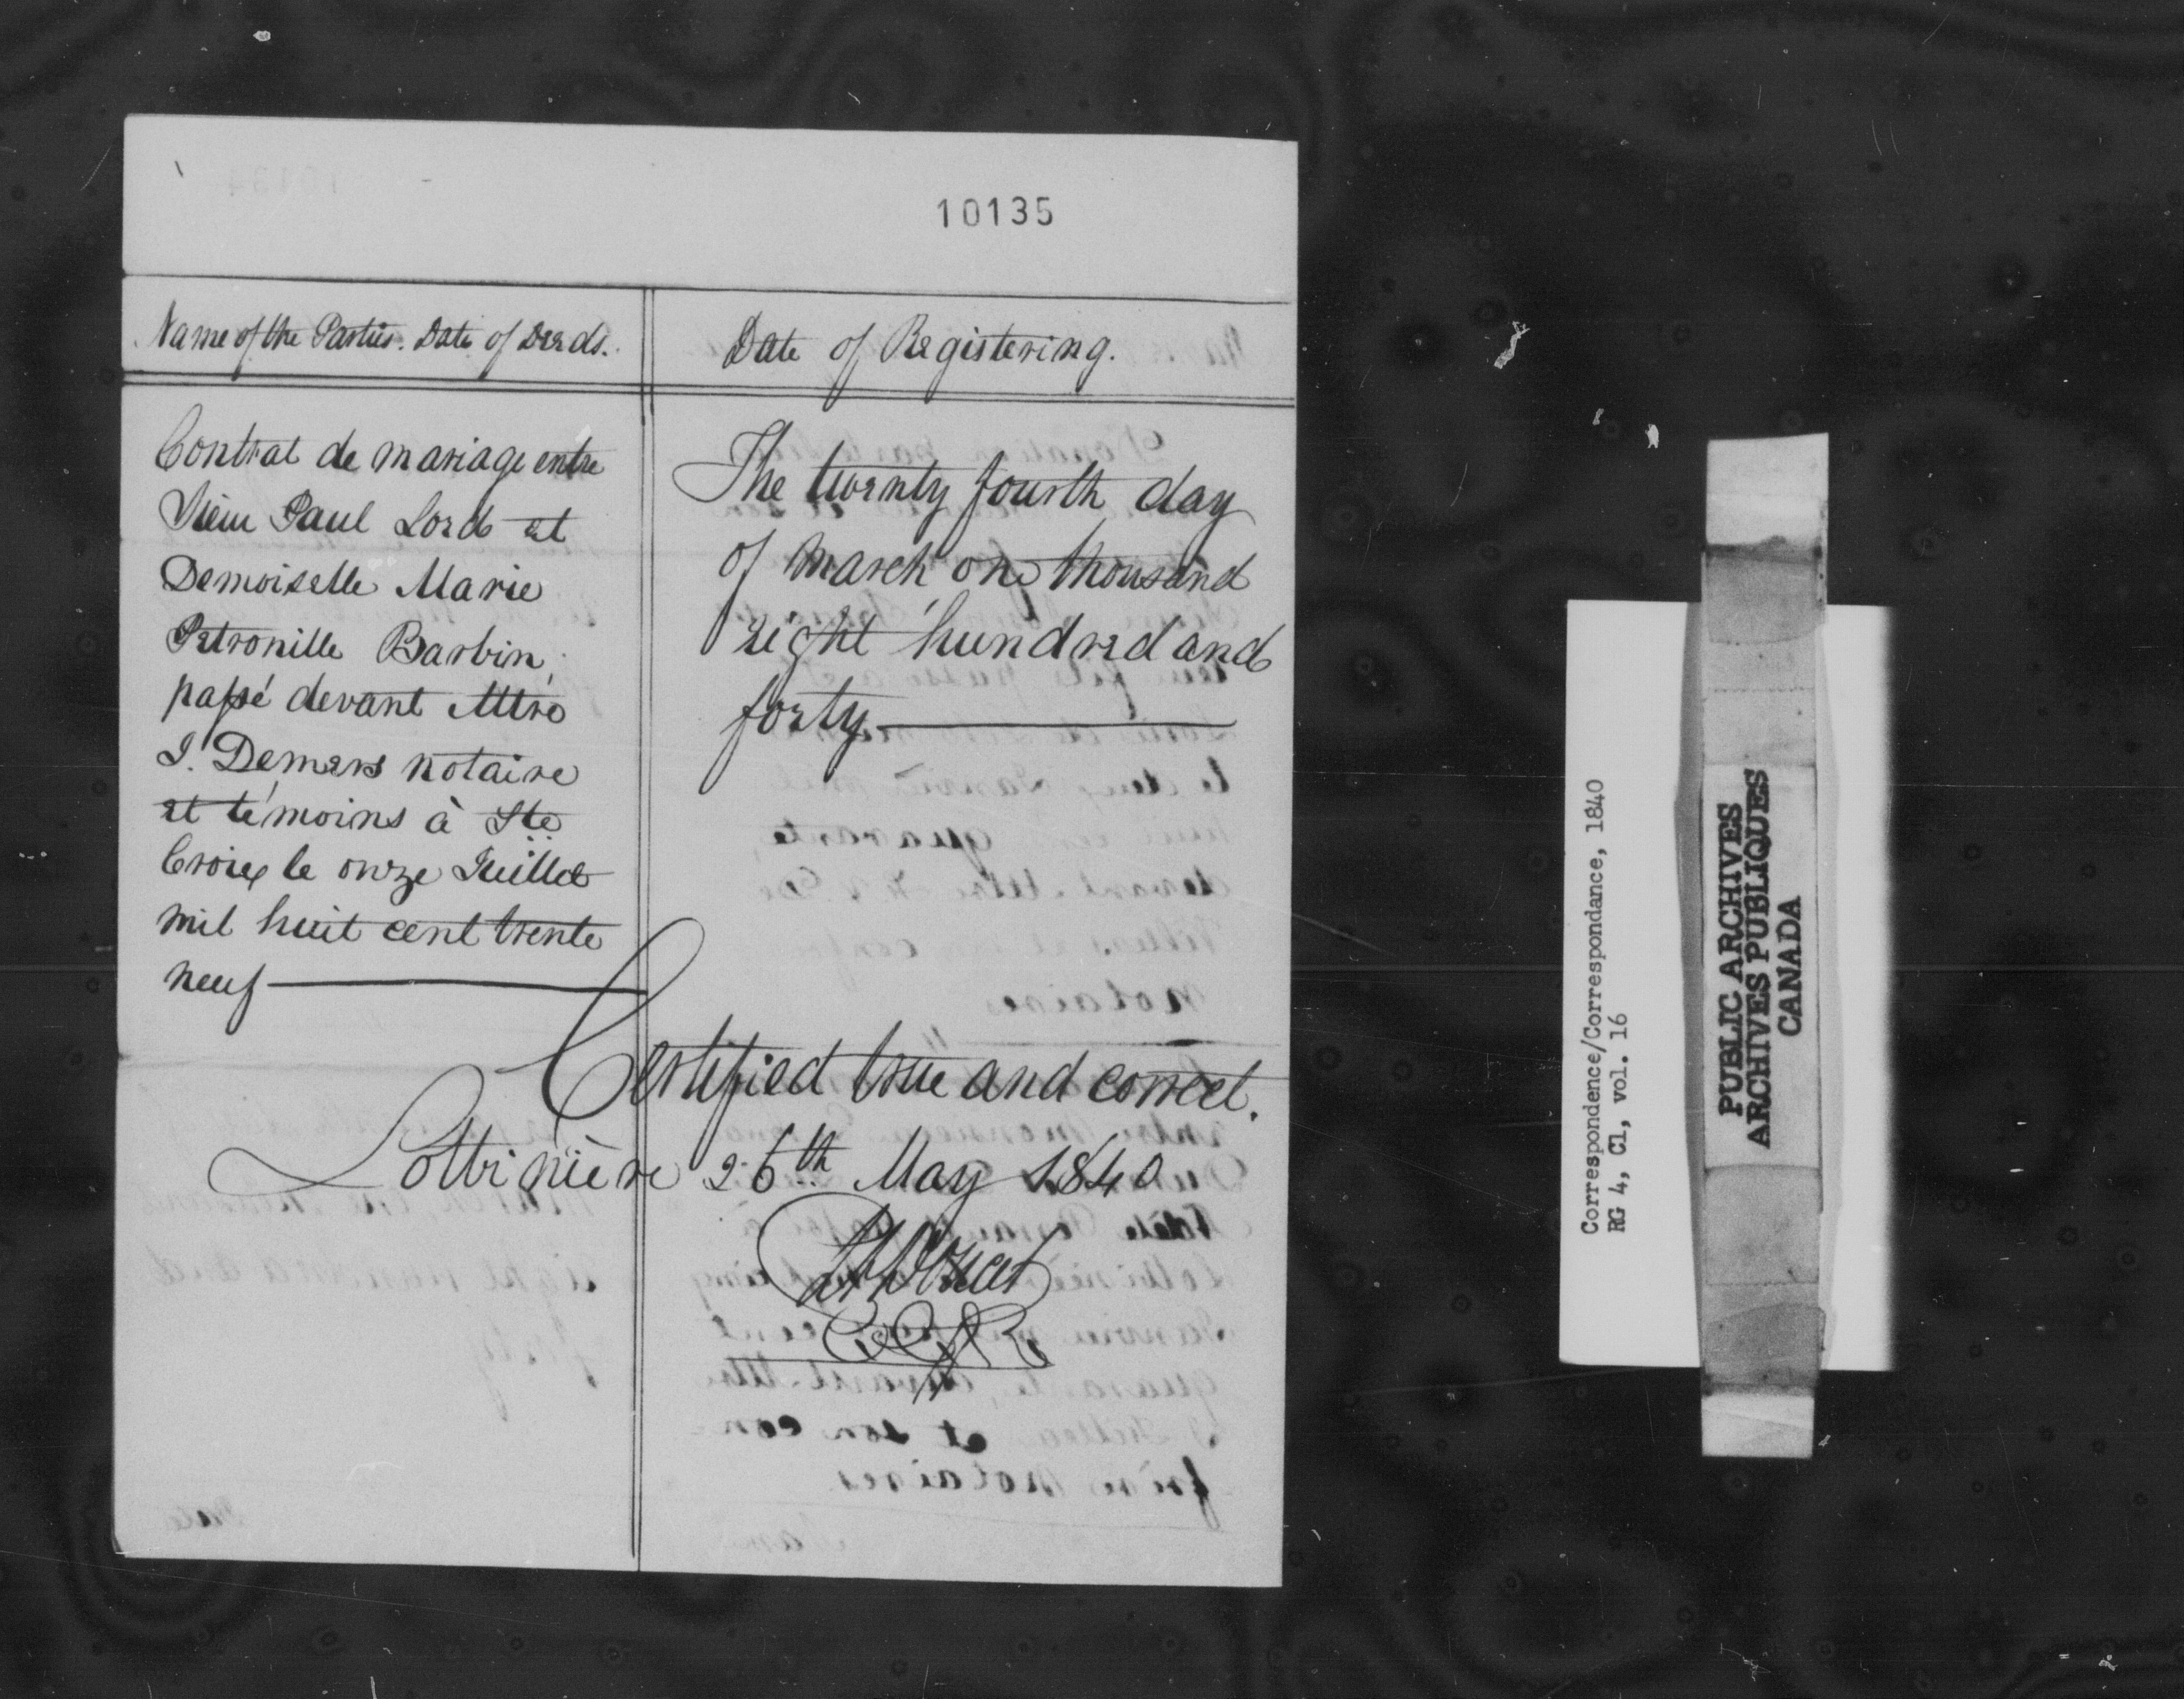 10135
Name of the Parties. Date of Deeds.
Contrat de mariage entre
Sieur Paul Lord et
Demoiselle Marie
Petronille Barbin,
passé devant Mtre
J. Demers notaire
et témoins à Ste
Croix le onze Juillet
mil huit cent trente
neuf
Date of Registering.
The twenty fourth day
of march one thousand
eight hundred and
forty
Certified true and correct.
Lotbinière 26th May 1840
Correspondence/Correspondance, 1840
RG 4, C1, vol. 16
PUBLIC ARCHIVES
ARCHIVES PUBLIQUES
CANADA